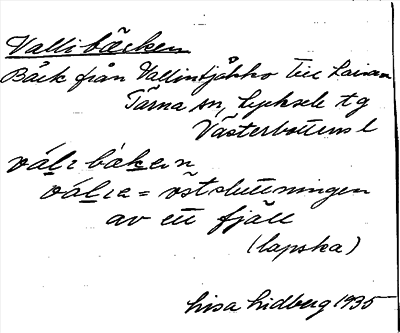 Vallibäcken
Bäck från Vallintjåkko till Laisan
Tärna sn, Lycksele tg
Västerbottens l
váḻ:e = västsluttningen
av ett fjäll
(lapska)
Lisa Lidberg 1935